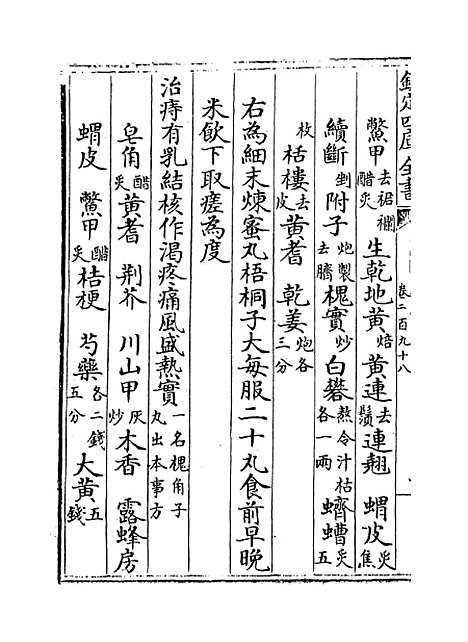 欽定四庫全書
卷二百九十八
鱉甲去裙襴醋炙 生乾地黄焙 黄連去鬚 連翹 蝟皮炙焦
續斷剉 附子炮製去臍 槐實炒 白礬熬令汁枯各一兩 蠐螬炙五
枚 栝樓去皮 黄耆 乾姜炮各三分
右為細末煉蜜丸梧桐子大每服二十丸食前早晚
米飲下取瘥為度
治痔有乳結核作渴疼痛風盛熱實一名槐角子丸出本事方
皂角醋炙 黄耆 荆芥 川山甲灰炒 木香 露蜂房
蝟皮 鱉甲醋炙 桔梗 芍藥各二錢五分 大黄五錢